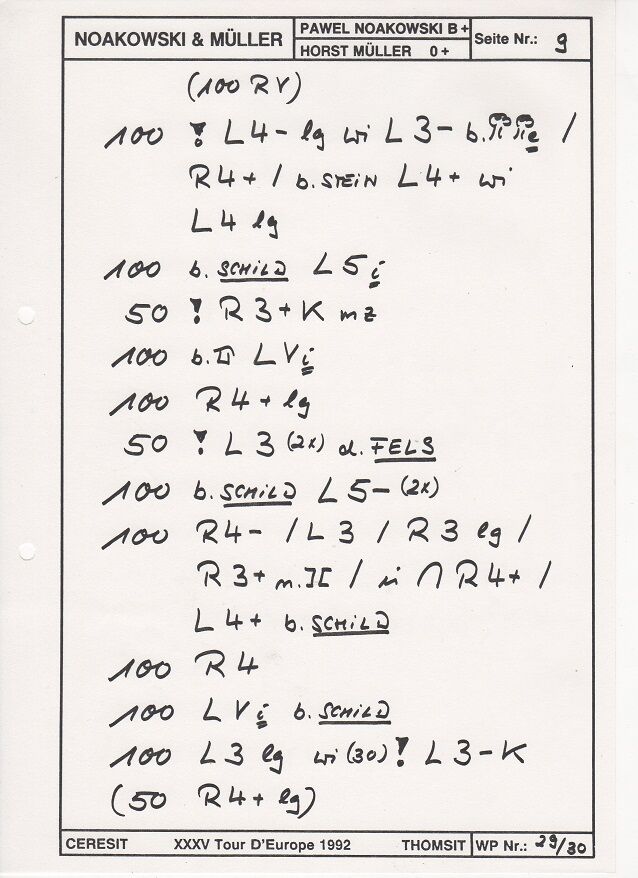 NOAKOWSKI & MÜLLER
PAWEL NOAKOWSKI B+
HORST MÜLLER 0+
Seite Nr.: 9
(100 RV)
100 ! L4- lg wi L3- b. /
R4+ / b. STEIN L4+ wi
L4 lg
100 b. SCHILD L5 i
50 ! R3+K mz
100 b. LVi
100 R4+ lg
50 ! L3 (2x) d. FELS
100 b. SCHILD L5- (2x)
100 R4- / L3 / R3 lg /
R3+ n. ][ / in ∩ R4+ /
L4+ b. SCHILD
100 R4
100 LVi b. SCHILD
100 L3 lg wi (30) ! L3-K
(50 R4+ lg)
CERESIT XXXV Tour D'Europe 1992 THOMSIT WP Nr.: 29/30